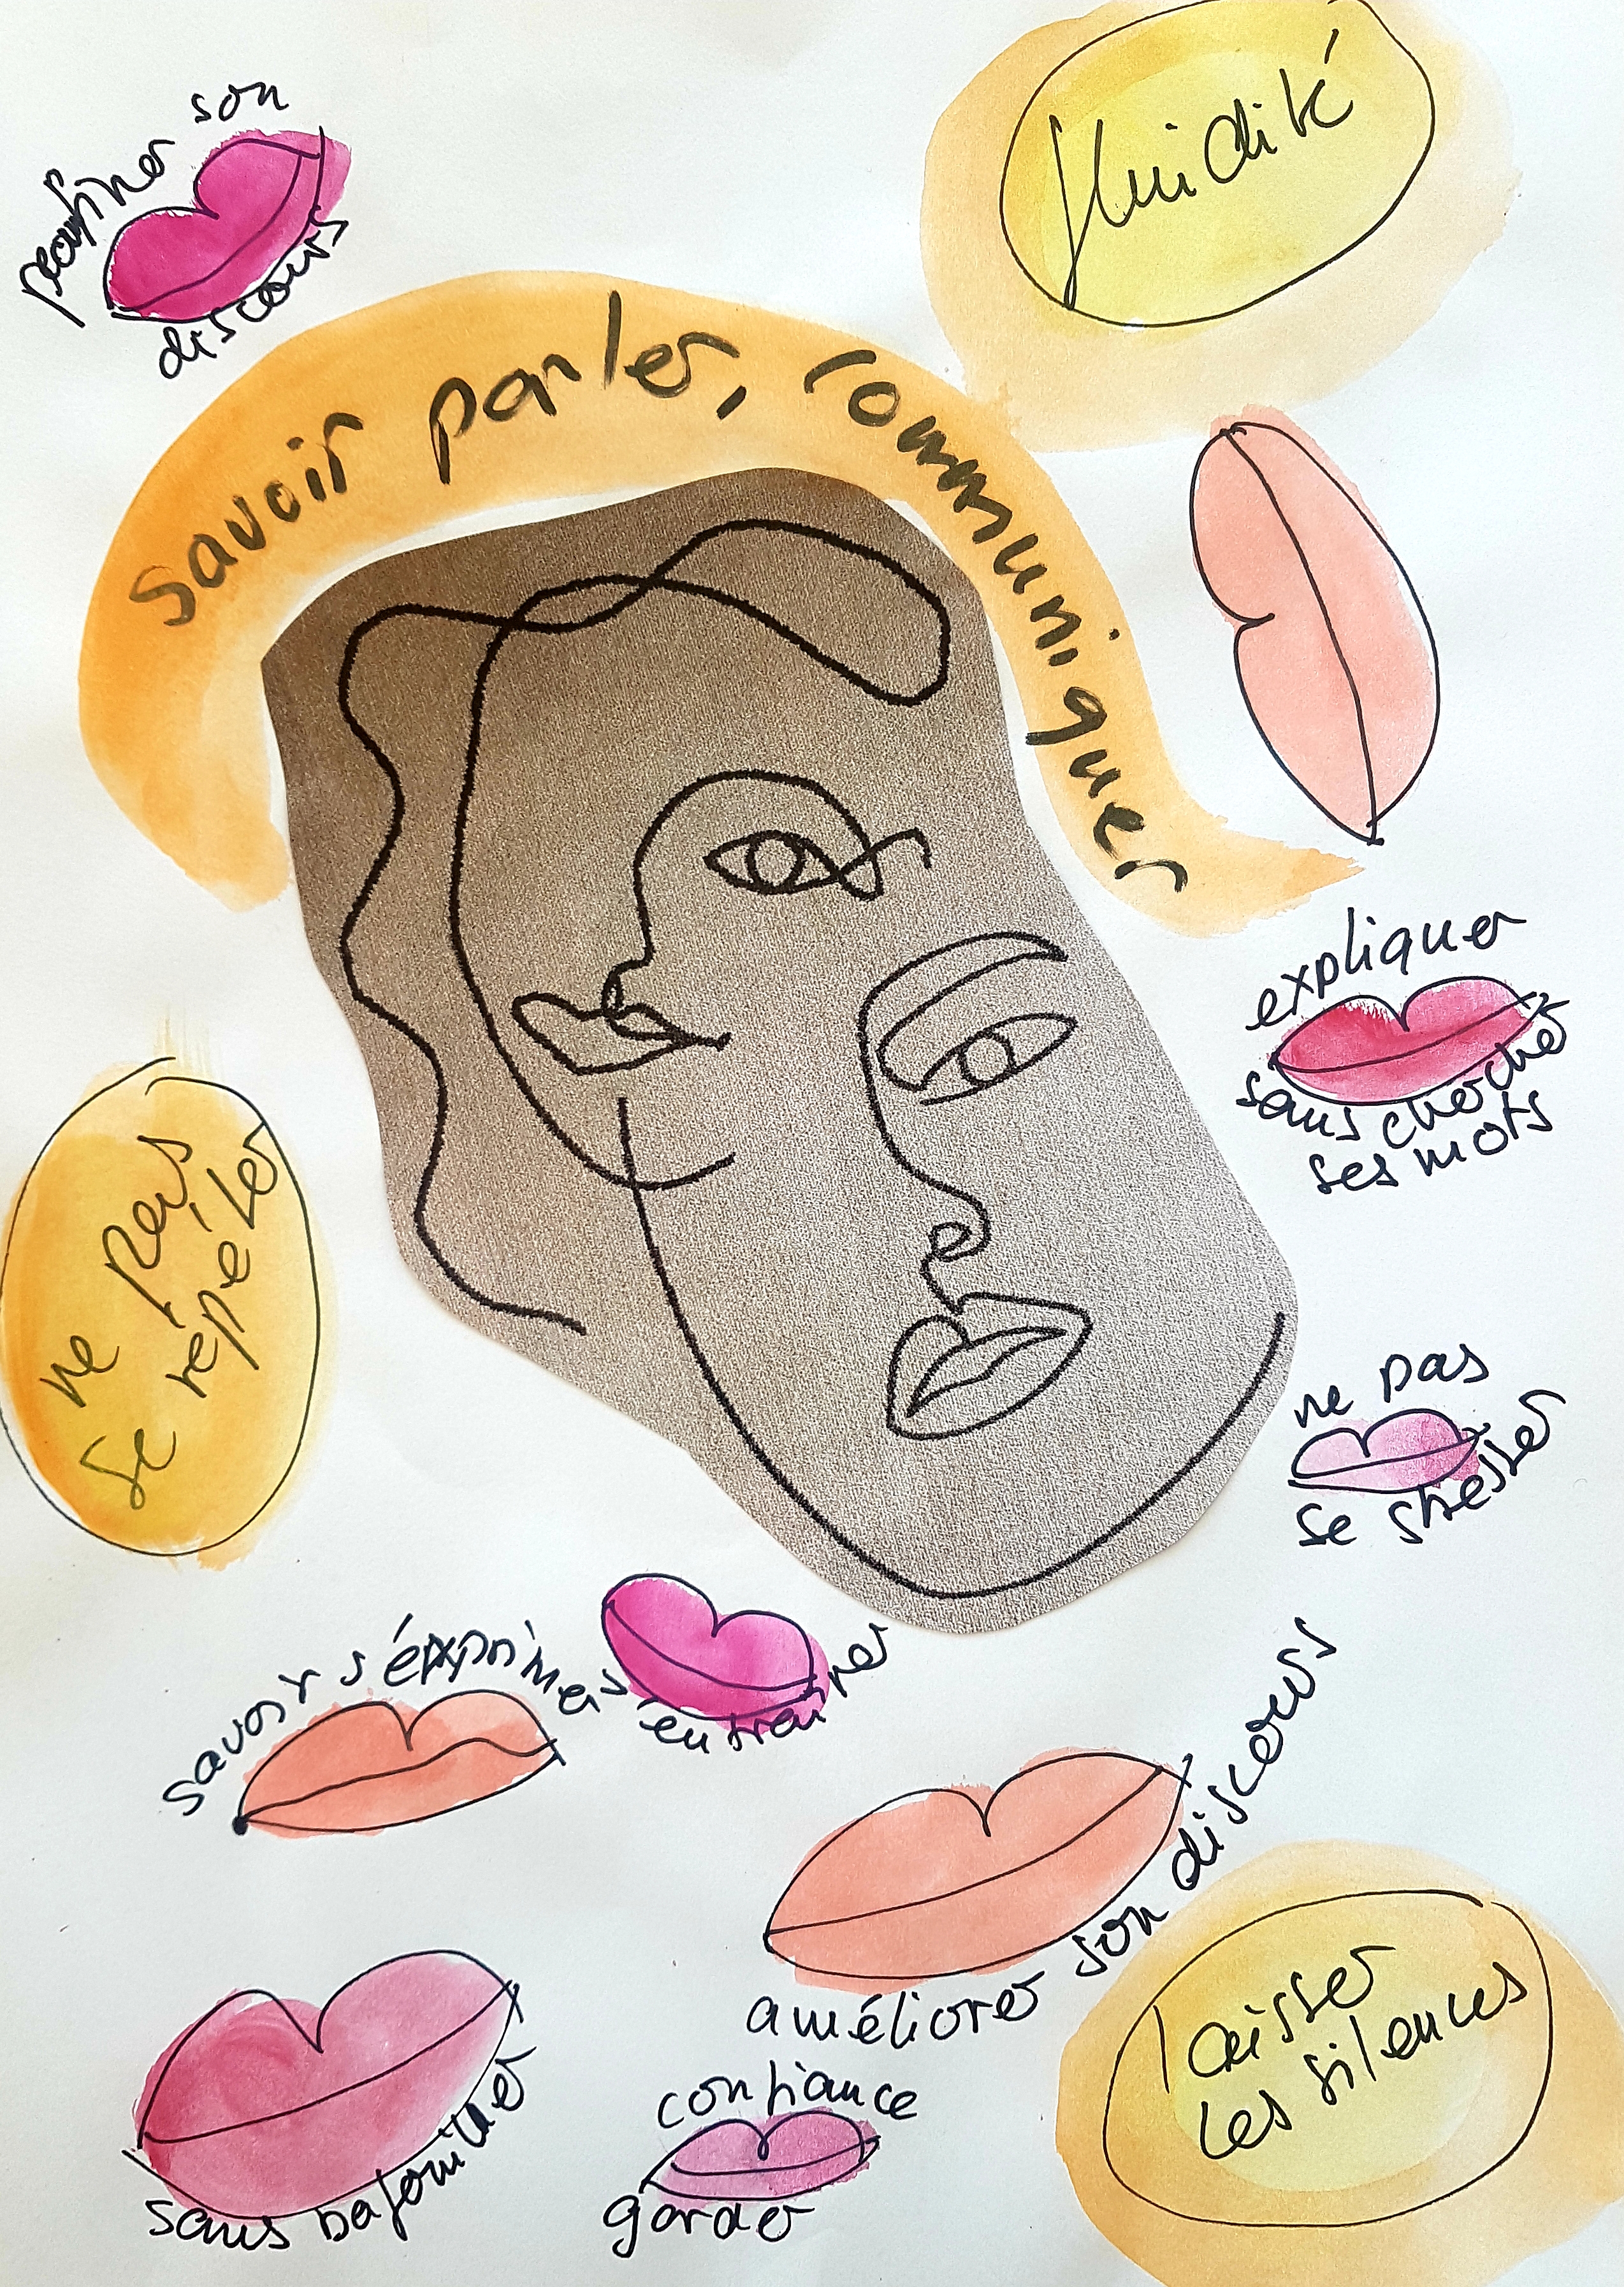 peaufiner son
discours
fluidité
savoir parler, communiquer
expliquer
sans chercher
ses mots
ne pas
se répéter
ne pas
se stresser
savoir s'éxprimer
s'entraîner
améliorer son discours
laisser
les silences
sans bafouiller
confiance
garder